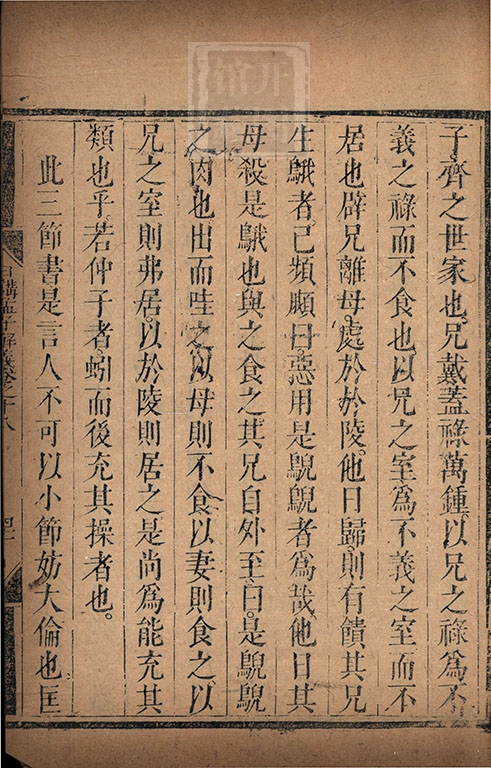 子齊之世家也兄戴蓋祿萬鍾以兄之祿為不
義之祿而不食也以兄之室為不義之室而不
居也辟兄離母處於於陵他日歸則有饋其兄
生鵝者己頻顣曰惡用是鶃鶃者為哉他日其
母殺是鵝也與之食之其兄自外至曰是鶃鶃
之肉也出而哇之以母則不食以妻則食之以
兄之室則弗居以於陵則居之是尚為能充其
類也乎若仲子者蚓而後充其操者也
此三節書是言人不可以小節妨大倫也匡
日講四書解義卷之十八